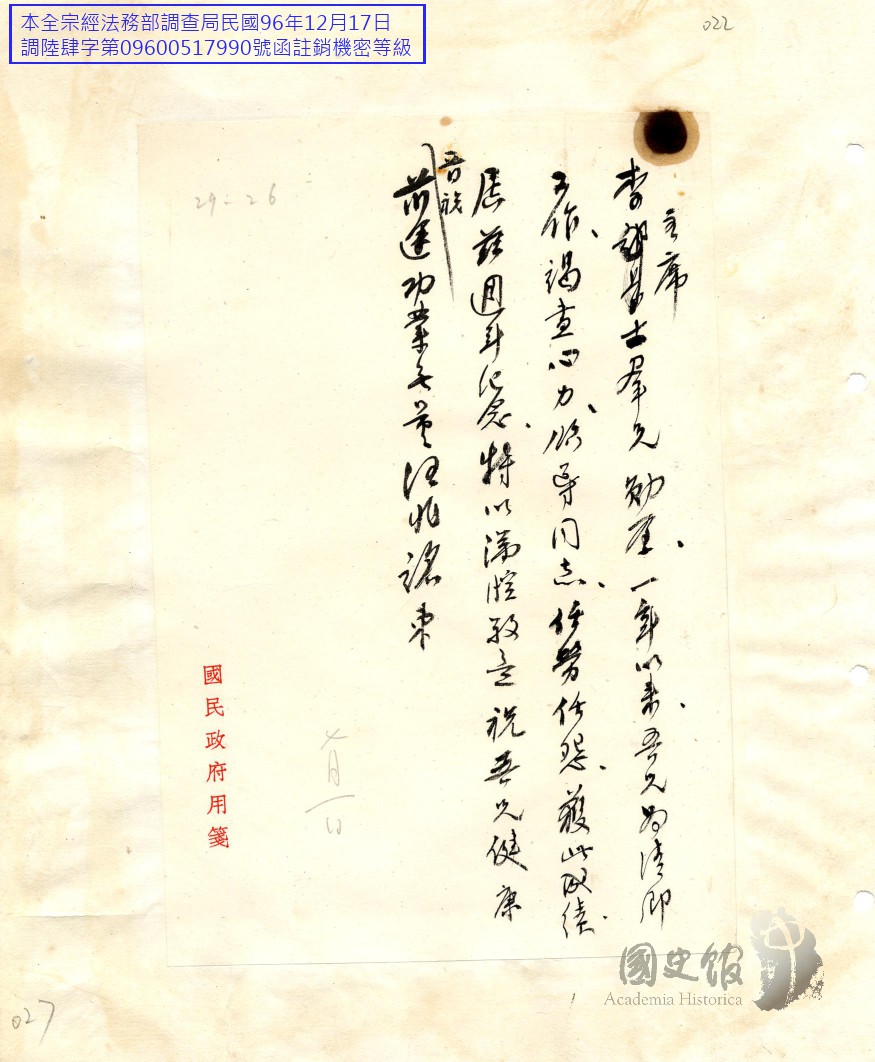 本全宗經法務部調查局民國96年12月17日
調陸肆字第09600517990號函註銷機密等級
022
主席
李部長士羣兄勛鑒、一年以來、吾兄為清鄉
工作、竭盡心力、領導同志、任勞任怨、獲此成績、
居茲週年紀念、特以滿腔敬意祝吾兄健康
晉祝
前途功業無量汪兆銘東
29-26
七月一日
國民政府用箋
國史館
Academia Historica
027